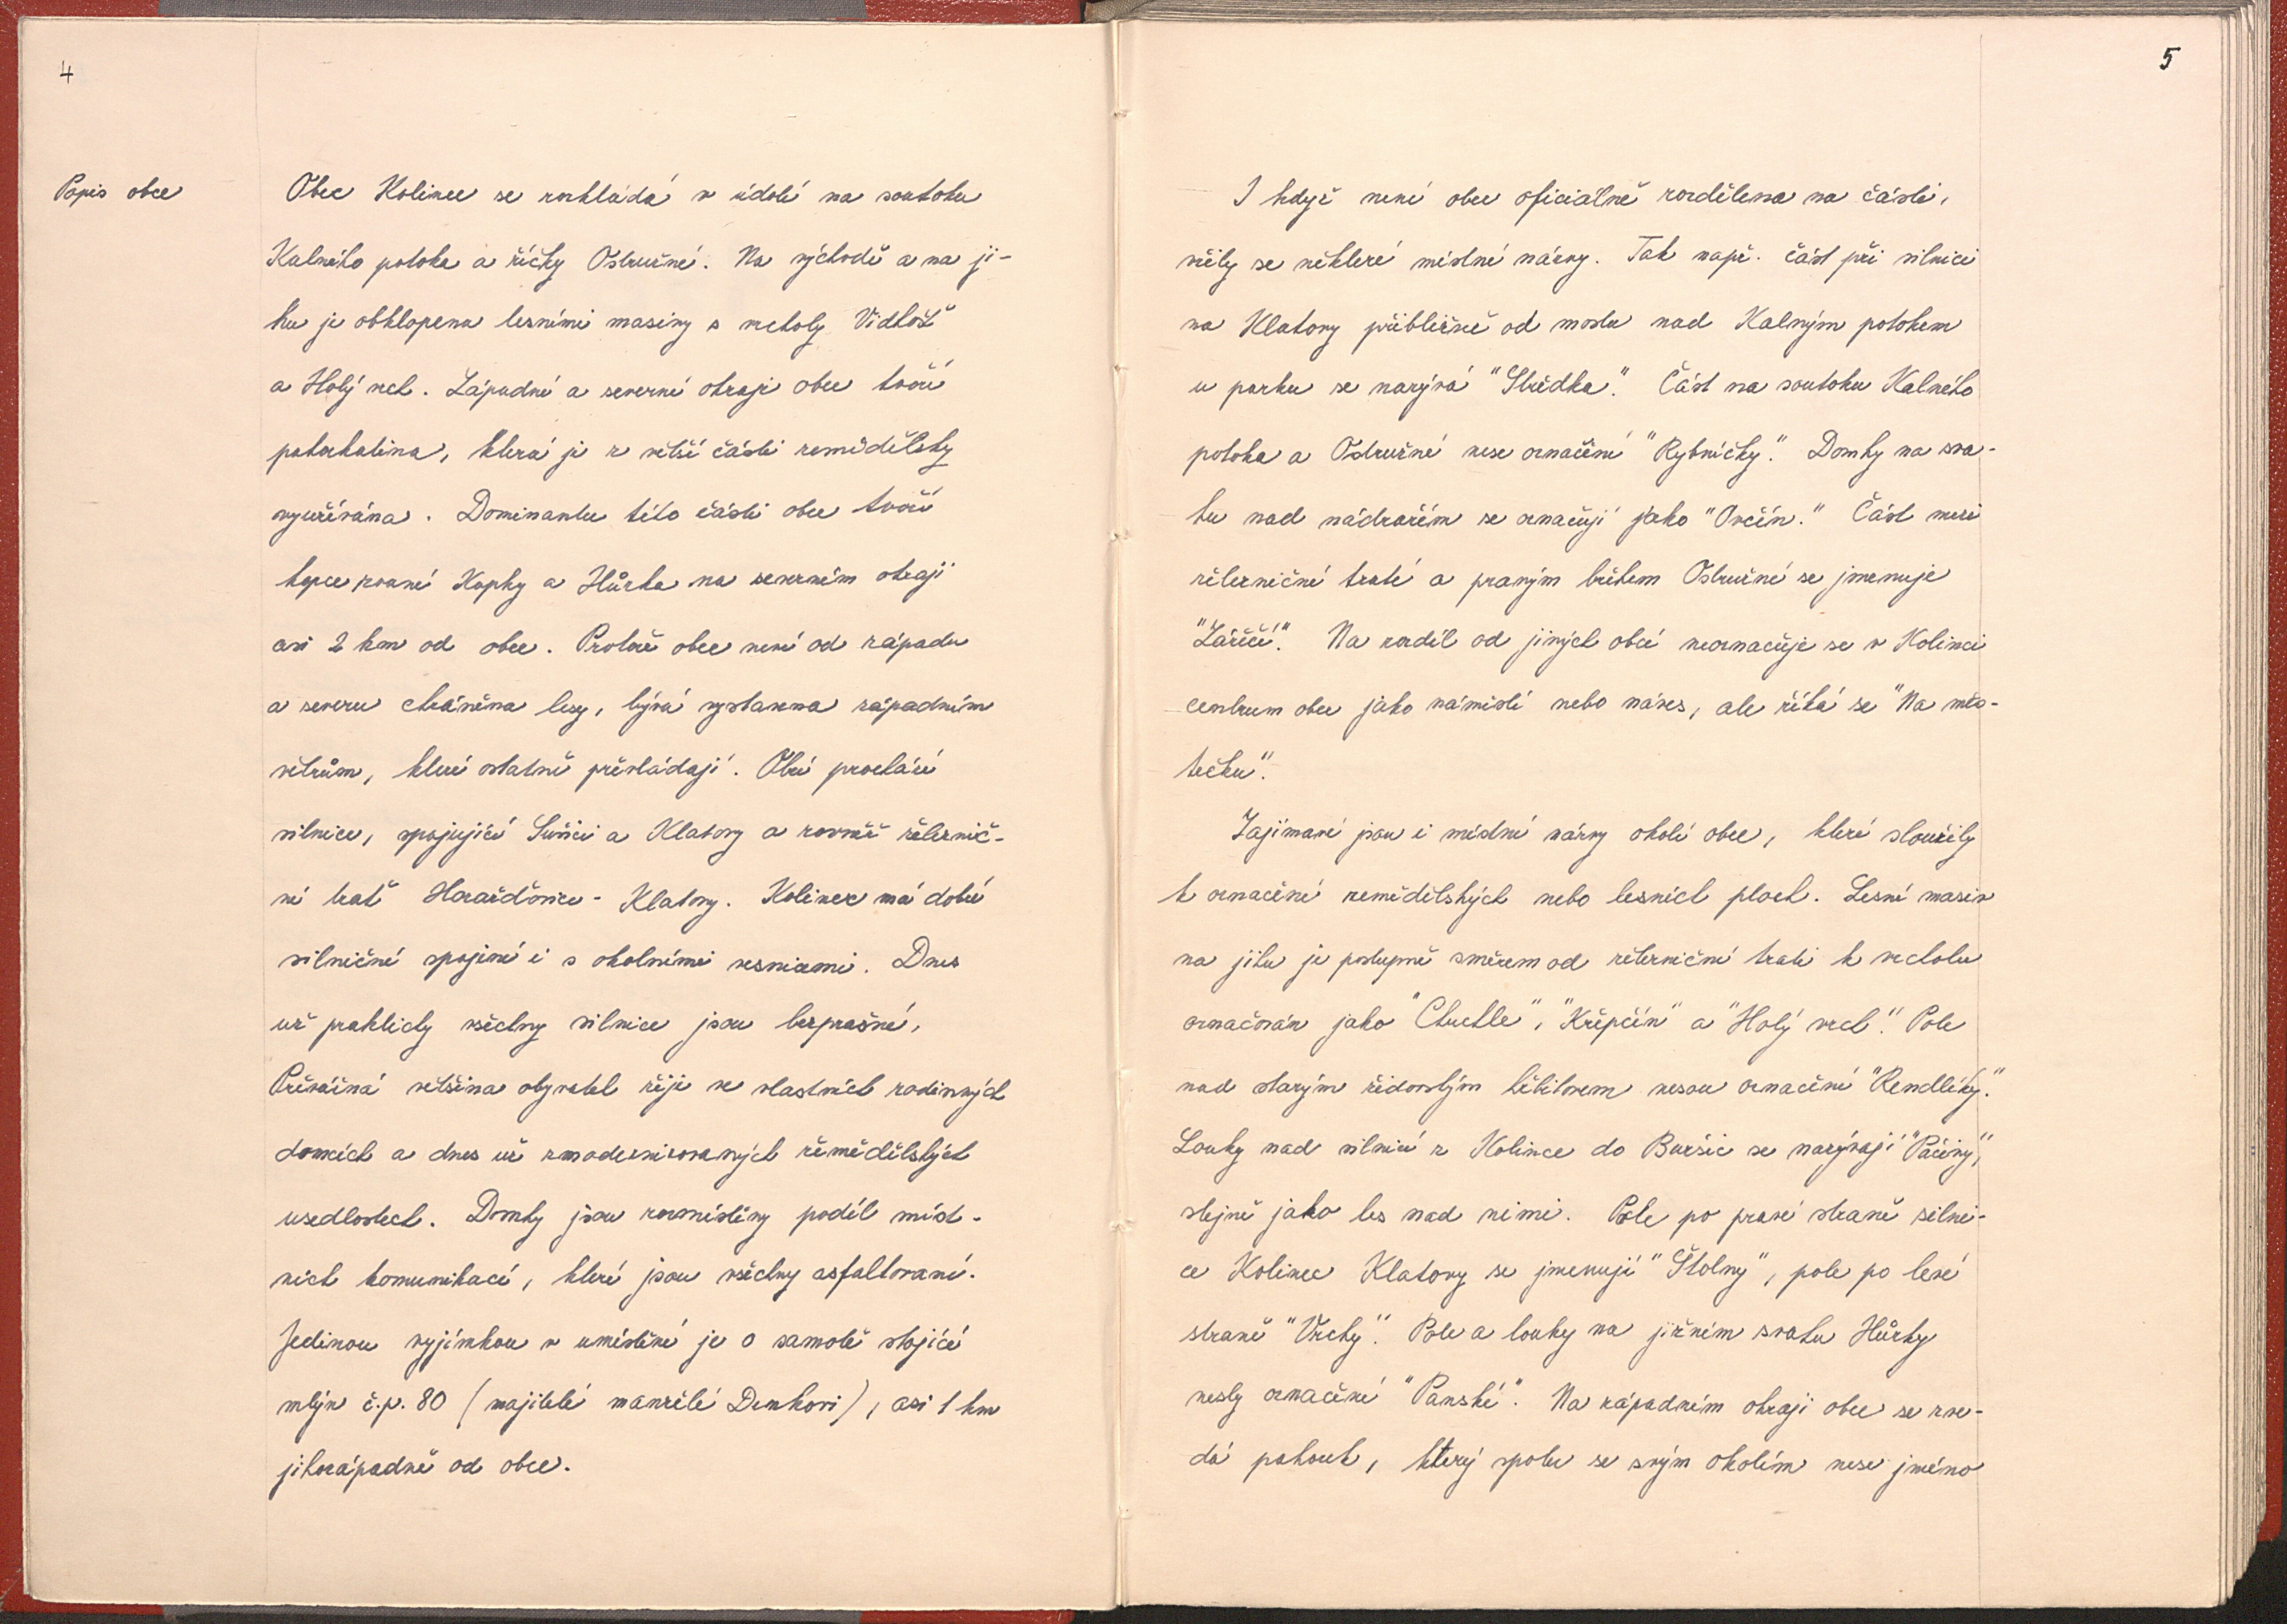 4
Popis obce
Obec Kolinec se rozkládá v údolí na soutoku
Kalného potoka a říčky Ostružné. Na východě a na ji-
hu je obklopena lesními masivy s vrcholy Vidhošť
a Holý vrch. Západní a severní okraje obce tvoří
pahorkatina, která je z větší části zemědělsky
využívána. Dominantu této části obce tvoří
kopce zvané Kopky a Hůrka na severním okraji
asi 2 km od obce. Protože obec není od západu
a severu chráněna lesy, bývá vystavena západním
větrům, které ostatně převládají. Obcí prochází
silnice, spojující Sušici a Klatovy a rovněž železnič-
ní trať Horažďovice - Klatovy. Kolinec má dobré
silniční spojení i s okolními vesnicemi. Dnes
už prakticky všechny silnice jsou bezprašné,
Převážná většina obyvatel žije ve vlastních rodinných
domcích a dnes už zmodernizovaných zěmědělských
usedlostech. Domky jsou rozmístěny podél míst-
ních komunikací, které jsou všechny asfaltované.
Jedinou vyjímkou v umístění je o samotě stojící
mlýn č.p. 80 (majitelé manželé Denkovi), asi 1 km
jihozápadně od obce.
5
I když není obec oficiálně rozdělena na části,
vžily se některé místní názvy. Tak např. část při silnici
na Klatovy přibližně od mostu nad Kalným potokem
u parku se nazývá "Střédka". Část na soutoku Kalného
potoka a Ostružné nese označení "Rybníčky". Domky na sva-
hu nad nádražím se označují jako "Ovčín." Část mezi
železniční tratí a pravým břehem Ostružné se jmenuje
"Záříčí". Na rozdíl od jiných obcí neoznačuje se v Kolinci
centrum obce jako náměstí nebo náves, ale říká se "Na měs-
tečku".
Zajímavé jsou i místní názvy okolí obce, které sloužily
k označení zemědělských nebo lesních ploch. Lesní masiv
na jihu je postupně směrem od železniční trati k vrcholu
označován jako "Chuchle", "Křepčín" a "Holý vrch". Pole
nad starým židovským hřbitovem nesou označení "Rendlíky".
Louky nad silnicí z Kolince do Buršic se nazývají "Páčiny",
stejně jako les nad nimi. Pole po pravé straně silni-
ce Kolinec Klatovy se jmenují "Štolny", pole po levé
straně "Vrchy". Pole a louky na jižním svahu Hůrky
nesly označení "Panské". Na západním okraji obce se zve-
dá pahorek, který spolu se svým okolím nese jméno